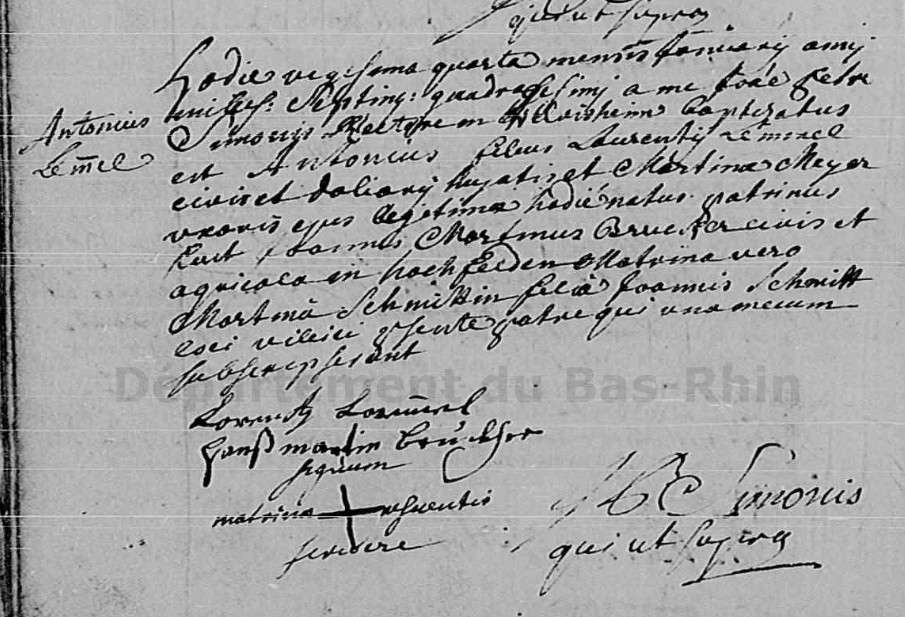 qui ut supra
Hodie vigesima quarta mensis January anni
milles: Septing: quadragesimi a me Joãe Petro
Simonis Rectore in baptizatus
Antonius
Lem̄el
est Antonius filius Laurentij Lemmel
civis et doliarij hujatis et Martinæ Meyer
uxoris ejus legitimæ hodie natus. patrinus
fuit Joannes Martinus Bruckher civis et
agricola in hochfelden Matrina vero
Martina Schmittin filia Joannis Schmitt
loci villici psente patre qui una mecum
subscripserunt
Département du Bas-Rhin
Lorentz Lem̄el
hanß martin bruckher
signum
matrina nescientis
scribere
Simonis
qui ut supra